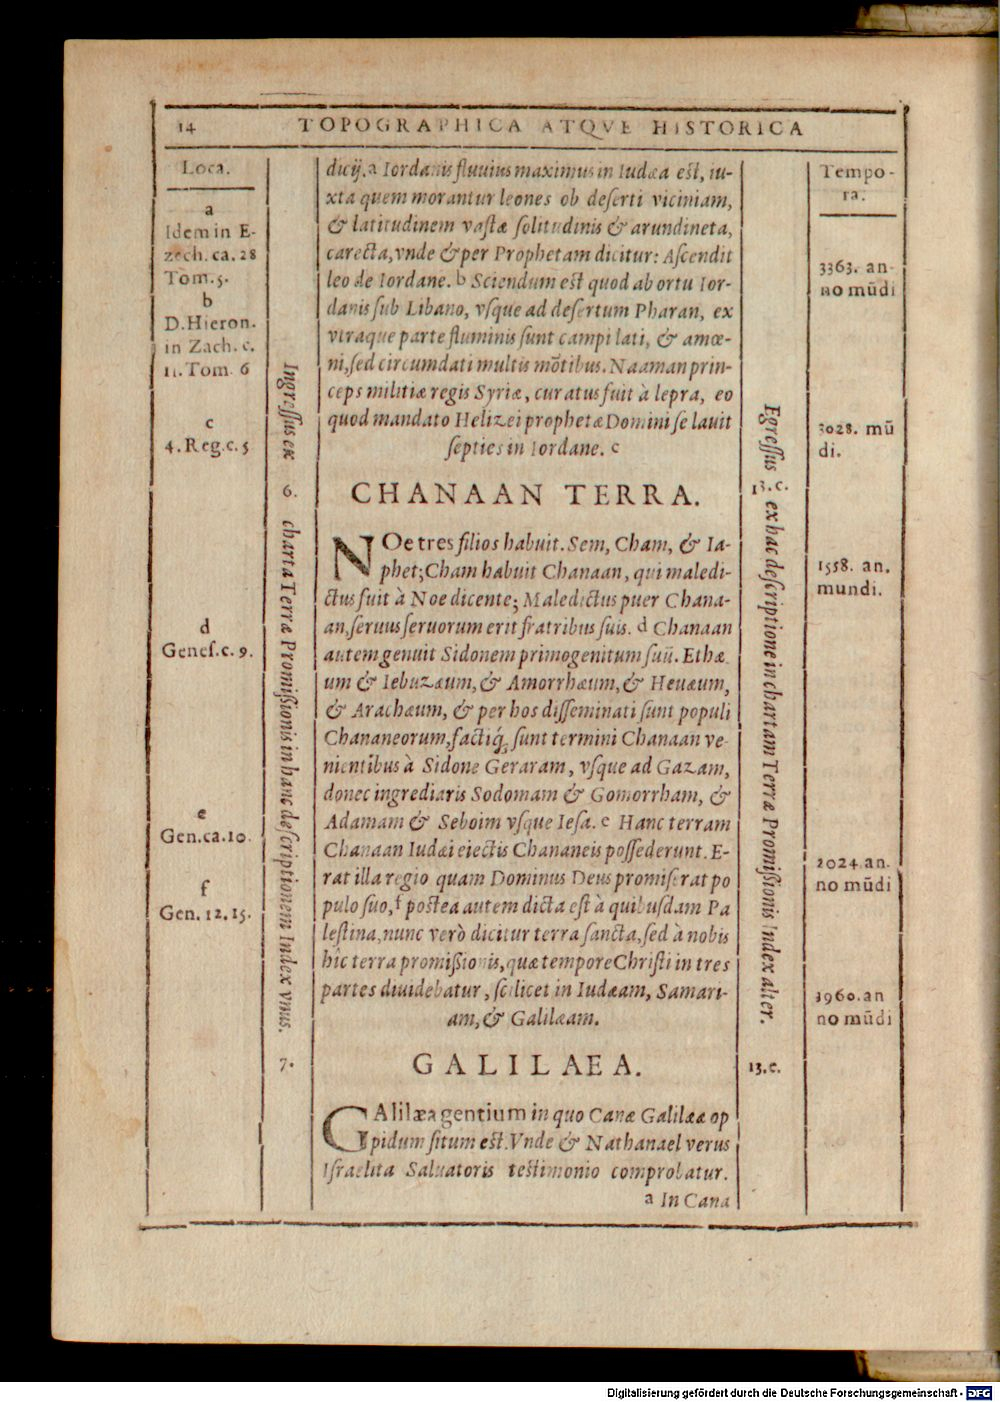 14 TOPOGRAPHICA ATQVE HISTORICA
Loca.
a
Idem in E-
zech. ca. 28
Tom. 5.
b
D. Hieron.
in Zach. c.
11. Tom. 6
c
4. Reg. c. 5
d
Genes. c. 9.
e
Gen. ca. 10.
f
Gen. 12. 15.
Ingreſſus ex charta Terræ Promiſsionis in hanc deſcriptionem Index vnus.
6.
7.
dicij. a Iordanis fluuius maximus in Iudæa eſt, iu-
xta quem morantur leones ob deſerti viciniam,
& latitudinem vaſtæ ſolitudinis & arundineta,
carecta, vnde & per Prophetam dicitur: Aſcendit
leo de Iordane. b Sciendum eſt quod ab ortu Ior-
danis ſub Libano, vſque ad deſertum Pharan, ex
vtraque parte fluminis ſunt campi lati, & amœ-
ni, ſed circumdati multis mõtibus. Naaman prin-
ceps militiæ regis Syriæ, curatus fuit à lepra, eo
quod mandato Helizei prophetæ Domini ſe lauit
ſepties in Iordane. c
CHANAAN TERRA.
NOe tres filios habuit. Sem, Cham, & Ia-
phet; Cham habuit Chanaan, qui maledi-
ctus fuit à Noe dicente; Maledictus puer Chana-
an, ſeruus ſeruorum erit fratribus ſuis. d Chanaan
autem genuit Sidonem primogenitum ſuũ. Ethæ
um & Iebuzæum, & Amorrhæum, & Heuæum,
& Arachæum, & per hos diſſeminati ſunt populi
Chananeorum, factiq́; ſunt termini Chanaan ve-
nientibus à Sidone Geraram, vſque ad Gazam,
donec ingrediaris Sodomam & Gomorrham, &
Adamam & Seboim vſque Ieſa. e Hanc terram
Chanaan Iudæi eiectis Chananeis poſſederunt. E-
rat illa regio quam Dominus Deus promiſerat po
pulo ſuo, f poſtea autem dicta eſt à quibuſdam Pa
leſtina, nunc verò dicitur terra ſancta, ſed à nobis
hîc terra promiſsionis, quæ tempore Chriſti in tres
partes diuidebatur, ſcilicet in Iudæam, Samari-
am, & Galilæam.
GALILAEA.
GAlilæa gentium in quo Canæ Galilææ op
pidum ſitum eſt. Vnde & Nathanael verus
Iſraelita Saluatoris teſtimonio comprobatur.
a In Cana
Egreſſus ex hac deſcriptione in chartam Terræ Promiſsionis Index alter.
13. c.
13. c.
Tempo-
ra.
3363. an-
no mũdi
3028. mũ
di.
1558. an.
mundi.
2024. an.
no mũdi
3960. an
no mũdi
Digitalisierung gefördert durch die Deutsche Forschungsgemeinschaft - DFG